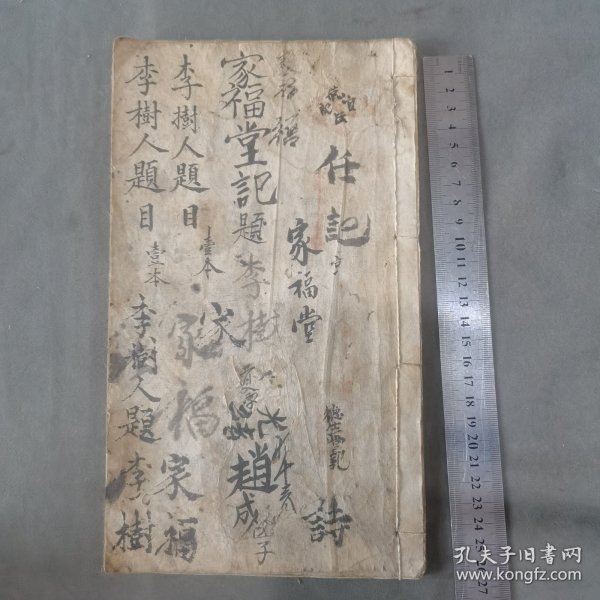 任記
詩
家福堂
德
家福堂記題李樹
趙成
子
家
李樹人題目
壹本
家福
家福
李樹人題目
壹本
李樹人題
李樹
1
2
3
4
5
6
7
8
9
10
11
12
13
14
15
16
17
18
19
20
21
22
23
24
25
26
27
孔夫子旧書网
www.kongfz.com